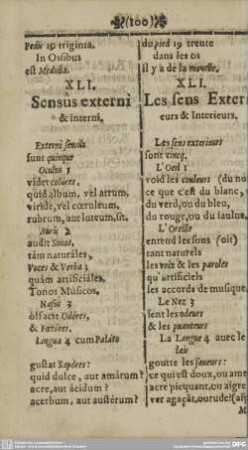 (100)
Pedis 19 triginta.
In Ossibus
est Medulla.
XLI.
Sensus externi
& interni,
Externi sensus
sunt quinque
Oculus 1
videt colóres,
quid album, vel atrum,
viride, vel cœruleum,
rubrum, aut luteum, sit.
Auris 2
audit Sonos,
tàm naturáles,
Voces & Verba;
quàm artificiáles,
Tonos Músicos,
Nasus 3
olfacit Odóres,
& Fœtóres.
Lingua 4 cum Paláto
gustat Sapóres:
quid dulce, aut amárum?
acre, aut ácidum?
acerbum, aut austérum?
du pied 19 trente
dans les os
il y a de la mouelle.
XLI.
Les sens Exter
eurs & Interieurs,
Les sens exterieurs
sont cincq.
L'Oeil 1
void les couleurs (du no
ce que c'est du blanc,
du verd, ou du bleu,
du rouge, ou du jaulne
L'Oreille
entend les sons (oit)
tant naturels
les voix & les paroles
qu'artificiels
les accords de musique,
Le Nez 3
sent les odeurs
& les puanteurs
La Langue 4 avec le
goutte les saveurs:
ce qui est doux, ou ame
acre picquant, ou aigre
ver agaçât, ou rude? (ast
M